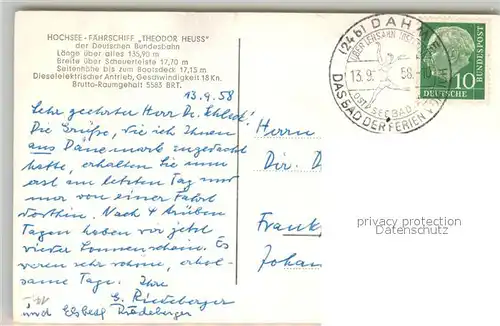 HOCHSEE-FÄHRSCHIFF „THEODOR HEUSS"
der Deutschen Bundesbahn
Länge über alles 135,90 m
Breite über Scheuerleiste 17,70 m
Seitenhöhe bis zum Bootsdeck 17,15 m
Dieselelektrischer Antrieb, Geschwindigkeit 18 Kn.
Brutto-Raumgehalt 5583 BRT.
13.9.58
Sehr geehrter Herr Dr.
Die Grüße, die ich Ihnen
aus Dänemark zugedacht
hatte, erhalten Sie nun
erst am letzten Tag nur
von einer Fahrt
dorthin. Nach 4 trüben
Tagen haben wir jetzt
wieder Sonnenschein. Es
waren sehr schöne, erhol-
same Tage. Ihre
E. Riedeberger
und Elsbeth Riedeberger
(24b) DAHME
ÜBER LENSAHN
13.9. 58.
OSTSEEBAD
DAS BAD DER FERIEN
10
DEUTSCHE BUNDESPOST
Herrn
Dir. D
Frank
Johan
privacy protection
Datenschutz